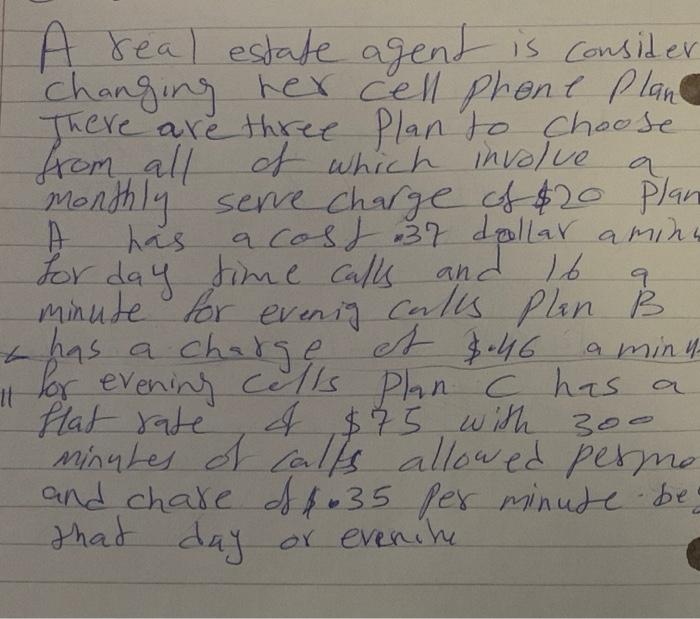 A real estate agent is consider
changing her cell phone Plan
There are three Plan to choose
from all of which involve a
monthly serve charge of $20 Plan
A has a cost .37 dollar a minu
for day time calls and 16 a
minute for evenig calls Plan B
has a charge of $.46 a minu
for evening cells Plan C has a
flat rate of $75 with 300
minutes of calls allowed per mo
and chare of $.35 per minute be
that day or evenin